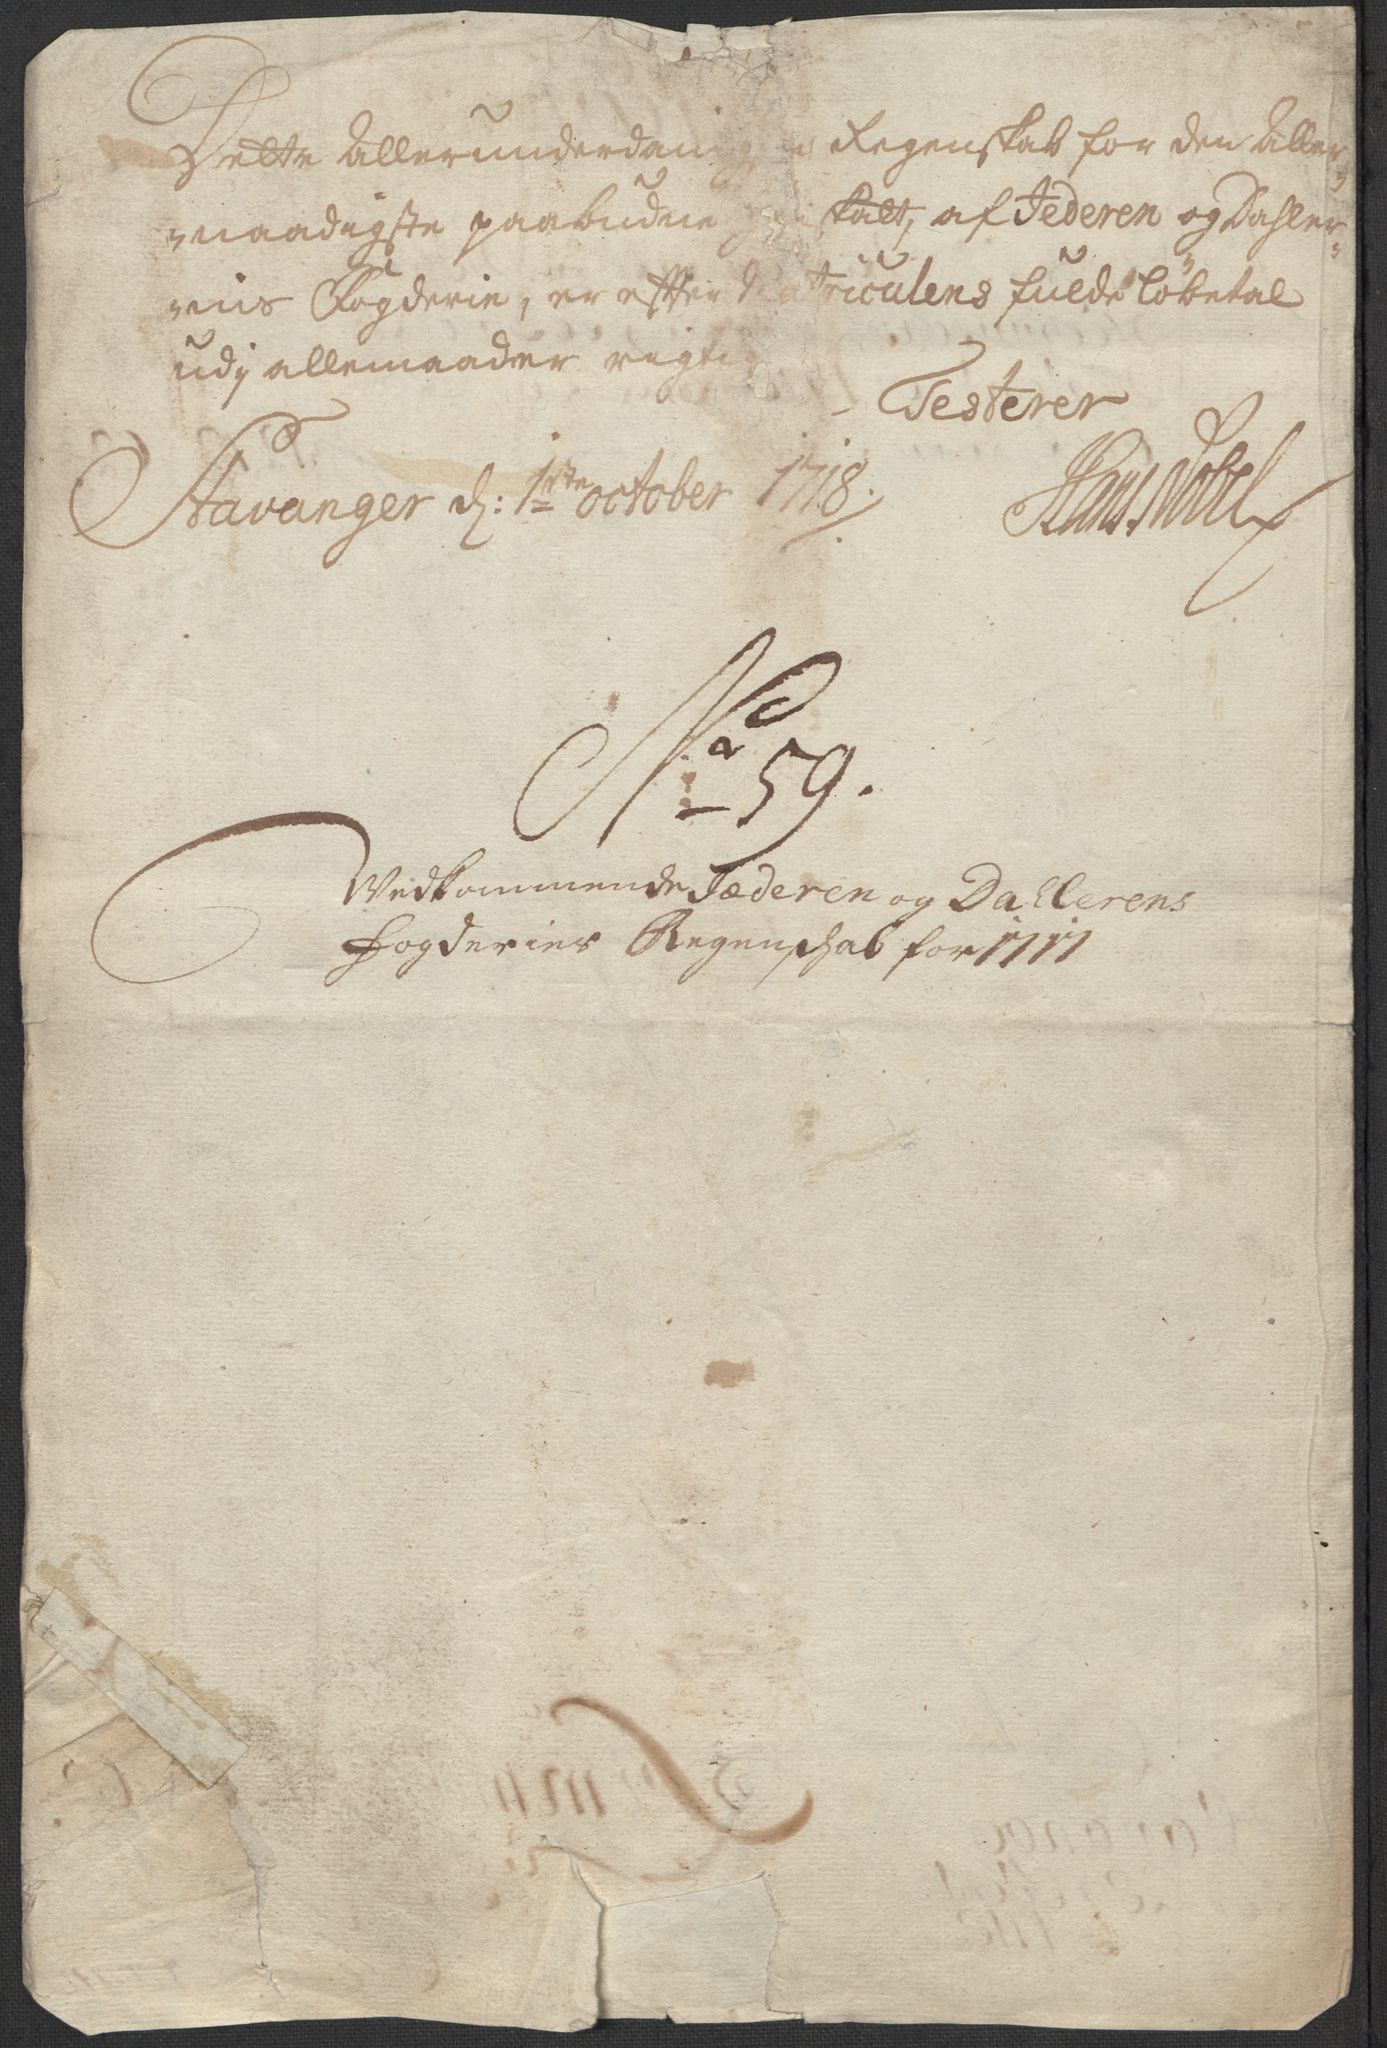 Dette Allerunderdanigste Regenskab for den Aller-
naadigste paabudne skatt, af Jederen og Dahler-
nis Fogderie, er effter Matriculens fulde löbetal
udj allemaader rigtig
Testerer
Stavanger d: 1ste october 1718.
Hans Nobel
No 59.
Vedkommende Jæderen og Dahlerens
Fogderies Regenschab for 1717